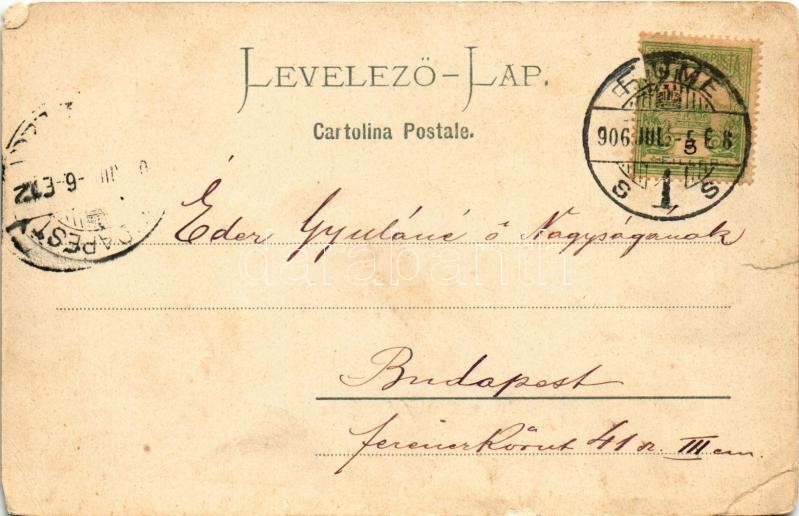 LEVELEZŐ-LAP.
Cartolina Postale.
FIUME
906 JUL -5 E 8
S 1 S
5
BUDAPEST
-6-E12
Éder Gyuláné ő Nagyságának
darabanth
Budapest
ferenczkörut 41 sz. III em.